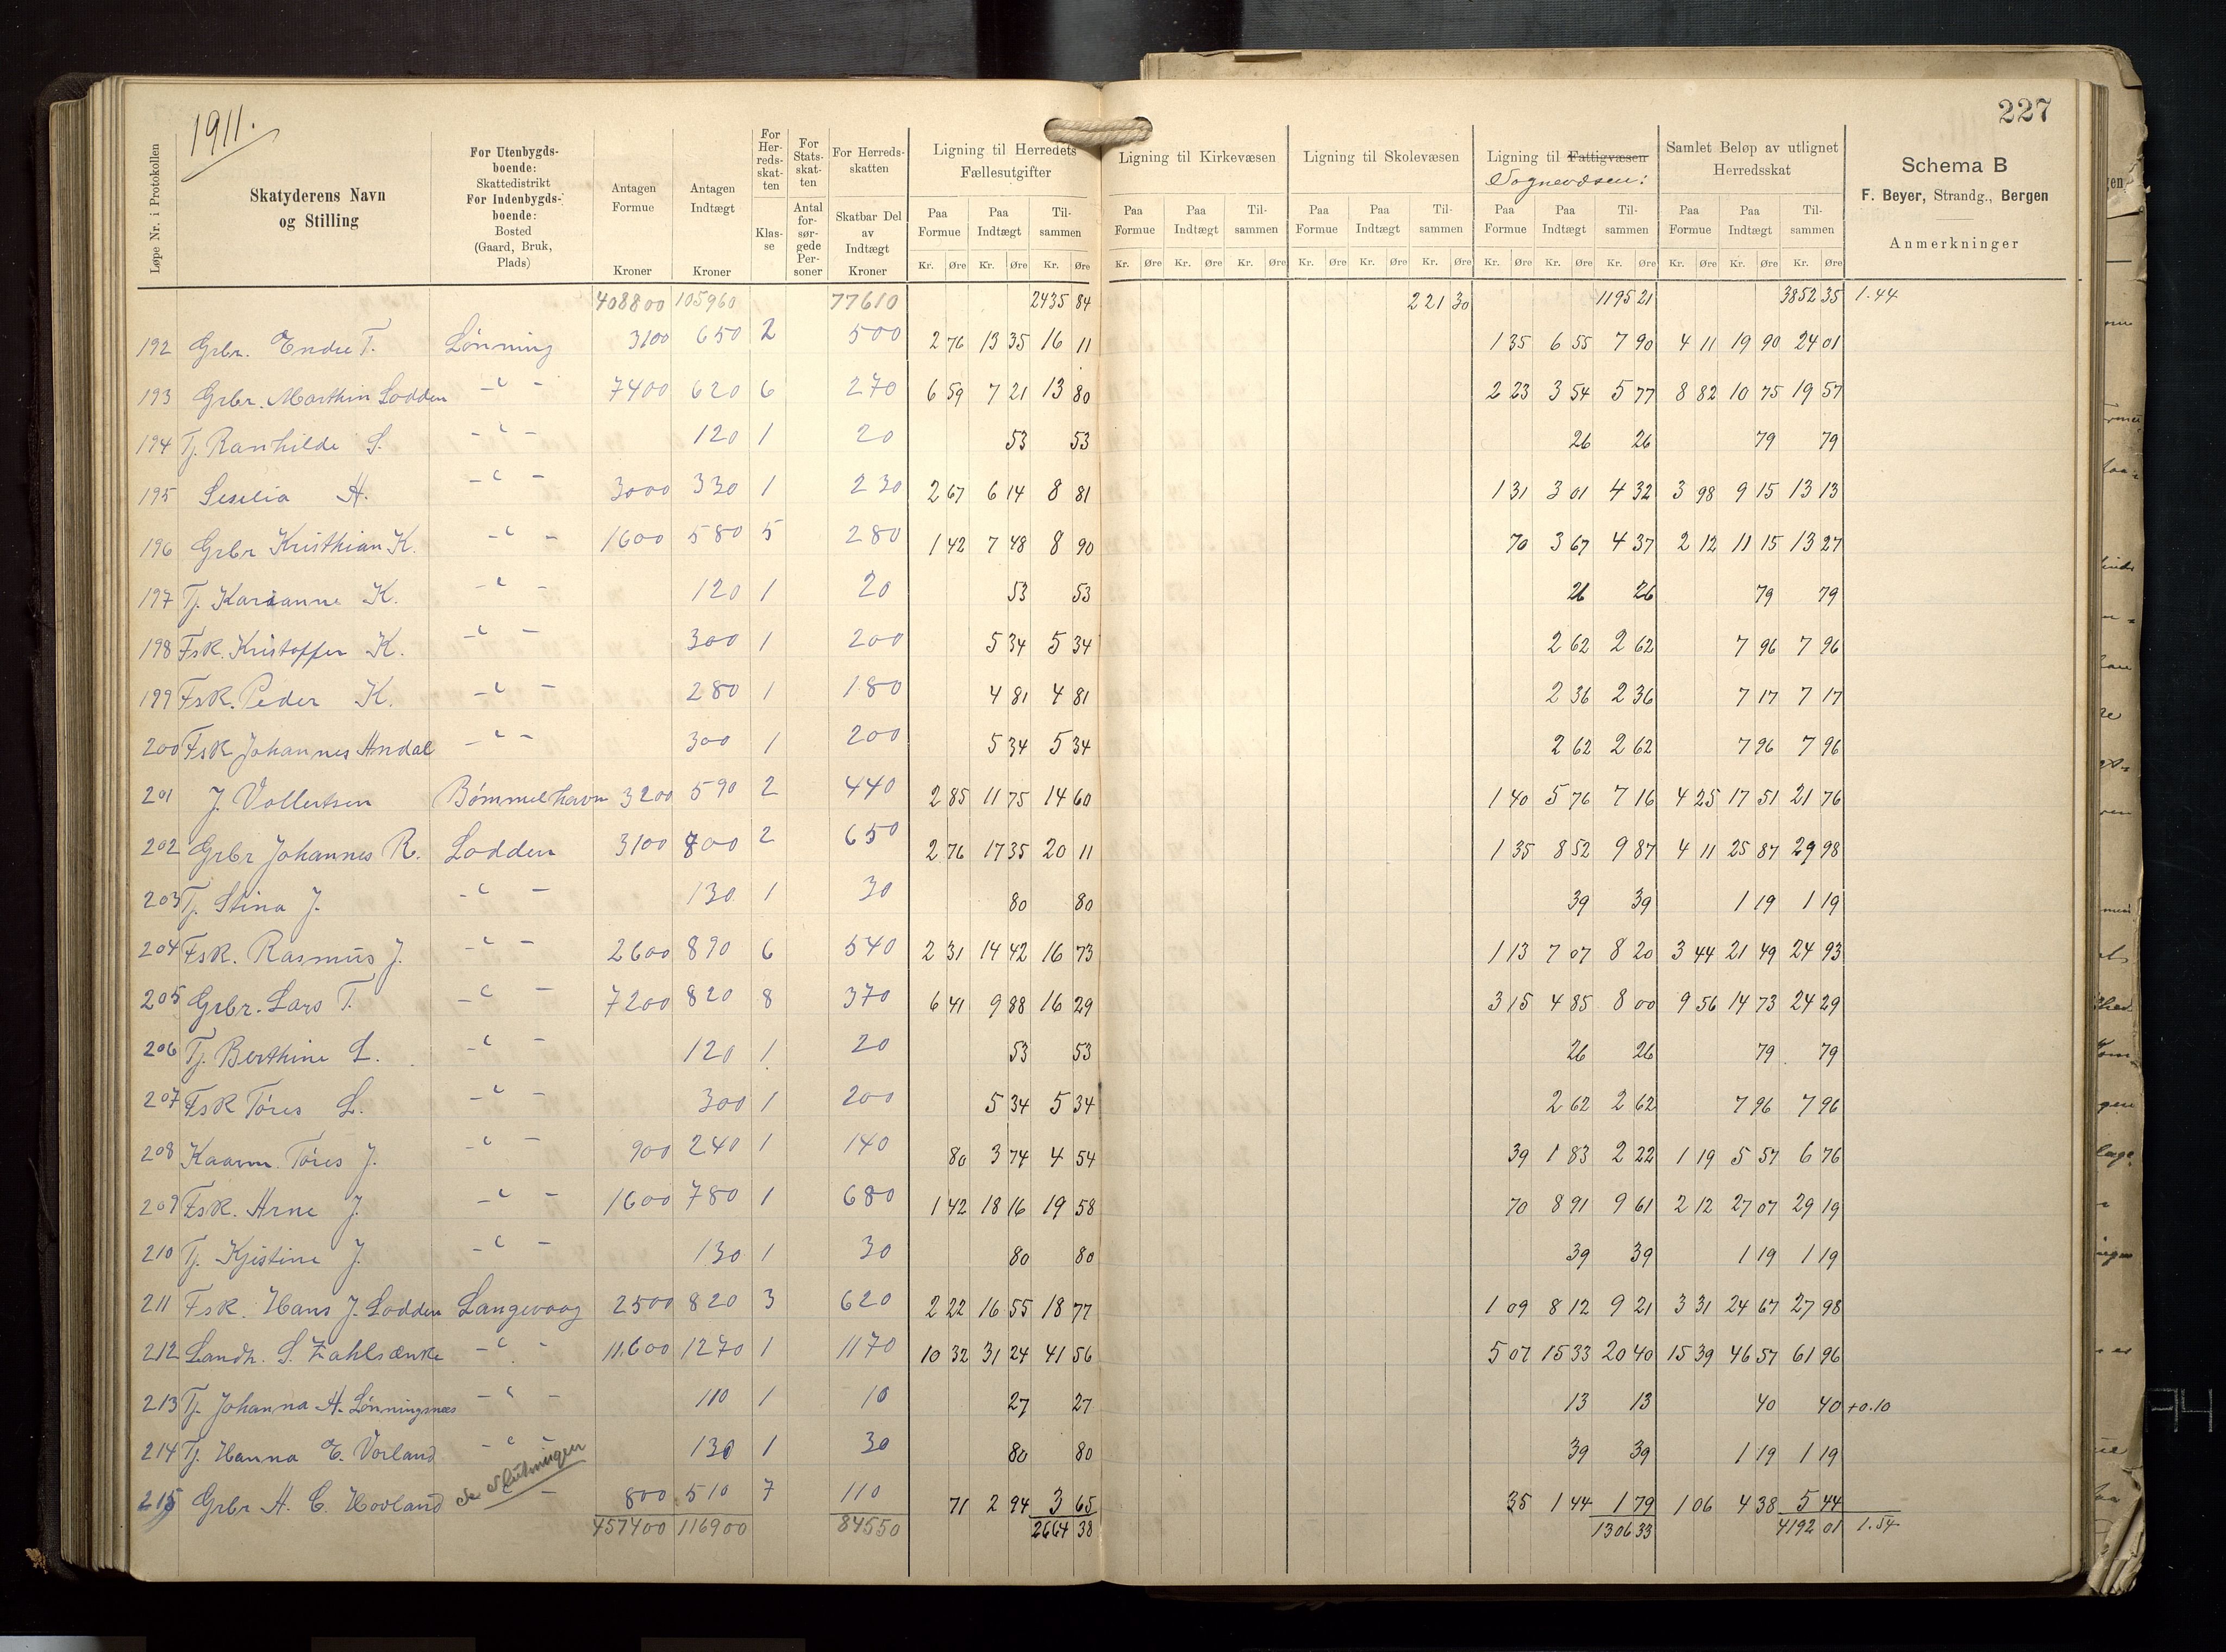 1911.
227
Løpe Nr. i Protokollen
Skatyderens Navn og Stilling
For Utenbygdsboende: Skattedistrikt For Indenbygdsboende: Bosted (Gaard, Bruk, Plads)
Antagen Formue Kroner
Antagen Indtægt Kroner
For Herredsskatten Klasse
For Statsskatten Antal forsørgede Personer
For Herredsskatten Skatbar Del av Indtægt Kroner
Ligning til Herredets Fællesutgifter
Ligning til Kirkevæsen
Ligning til Skolevæsen
Ligning til Fattigvæsen
Sognevæsen:
Samlet Beløp av utlignet Herredsskat
Paa Formue Paa Indtægt Tilsammen
Kr. Øre Kr. Øre Kr. Øre
Schema B
F. Beyer, Strandg., Bergen
Anmerkninger
408800 105960 77610 2435 84 221 30 1195 21 3852 35 1.44
192 Grbr. Endre T. Lønning 3100 650 2 500 2 76 13 35 16 11 1 35 6 55 7 90 4 11 19 90 24 01
193 Grbr. Marthin Lodden -"- 7400 620 6 270 6 59 7 21 13 80 2 23 3 54 5 77 8 82 10 75 19 57
194 Tj. Ranhilde S. -"- 120 1 20 53 53 26 26 79 79
195 Seselia H. -"- 3000 330 1 230 2 67 6 14 8 81 1 31 3 01 4 32 3 98 9 15 13 13
196 Grbr Kristhian K. -"- 1600 580 5 280 1 42 7 48 8 90 70 3 67 4 37 2 12 11 15 13 27
197 Tj. Karianne K. -"- 120 1 20 53 53 26 26 79 79
198 Fsk. Kristoffer K. -"- 300 1 200 5 34 5 34 2 62 2 62 7 96 7 96
199 Fsk. Peder K. -"- 280 1 180 4 81 4 81 2 36 2 36 7 17 7 17
200 Fsk. Johannes Andal -"- 300 1 200 5 34 5 34 2 62 2 62 7 96 7 96
201 J. Vollertsen Bømmelhavn 3200 590 2 440 2 85 11 75 14 60 1 40 5 76 7 16 4 25 17 51 21 76
202 Grbr Johannes R. Lodden 3100 800 2 650 2 76 17 35 20 11 1 35 8 52 9 87 4 11 25 87 29 98
203 Tj. Stina J. -"- 130 1 30 80 80 39 39 1 19 1 19
204 Fsk. Rasmus J. -"- 2600 890 6 540 2 31 14 42 16 73 1 13 7 07 8 20 3 44 21 49 24 93
205 Grbr. Lars T. -"- 7200 820 8 370 6 41 9 88 16 29 3 15 4 85 8 00 9 56 14 73 24 29
206 Tj. Berthine L. -"- 120 1 20 53 53 26 26 79 79
207 Fsk Tøres L. -"- 300 1 200 5 34 5 34 2 62 2 62 7 96 7 96
208 Kaarm. Tøres J. -"- 900 240 1 140 80 3 74 4 54 39 1 83 2 22 1 19 5 57 6 76
209 Fsk. Arne J. -"- 1600 780 1 680 1 42 18 16 19 58 70 8 91 9 61 2 12 27 07 29 19
210 Tj. Kjistine J. -"- 130 1 30 80 80 39 39 1 19 1 19
211 Fsk. Hans J. Lodden Langevaag 2500 820 3 620 2 22 16 55 18 77 1 09 8 12 9 21 3 31 24 67 27 98
212 Landh. S. Zahlsænke -"- 11.600 1270 1 1170 10 32 31 24 41 56 5 07 15 33 20 40 15 39 46 57 61 96
213 Tj. Johanna A. Lønningsnæs -"- 110 1 10 27 27 13 13 40 40 +0.10
214 Tj. Hanna E. Vorland -"- 130 1 30 80 80 39 39 1 19 1 19
215 Grbr A. C. Hovland Se Slutningen -"- 800 510 7 110 71 2 94 3 65 35 1 44 1 79 1 06 4 38 5 44
457400 116900 84550 2664 38 1306 33 4192 01 1.54